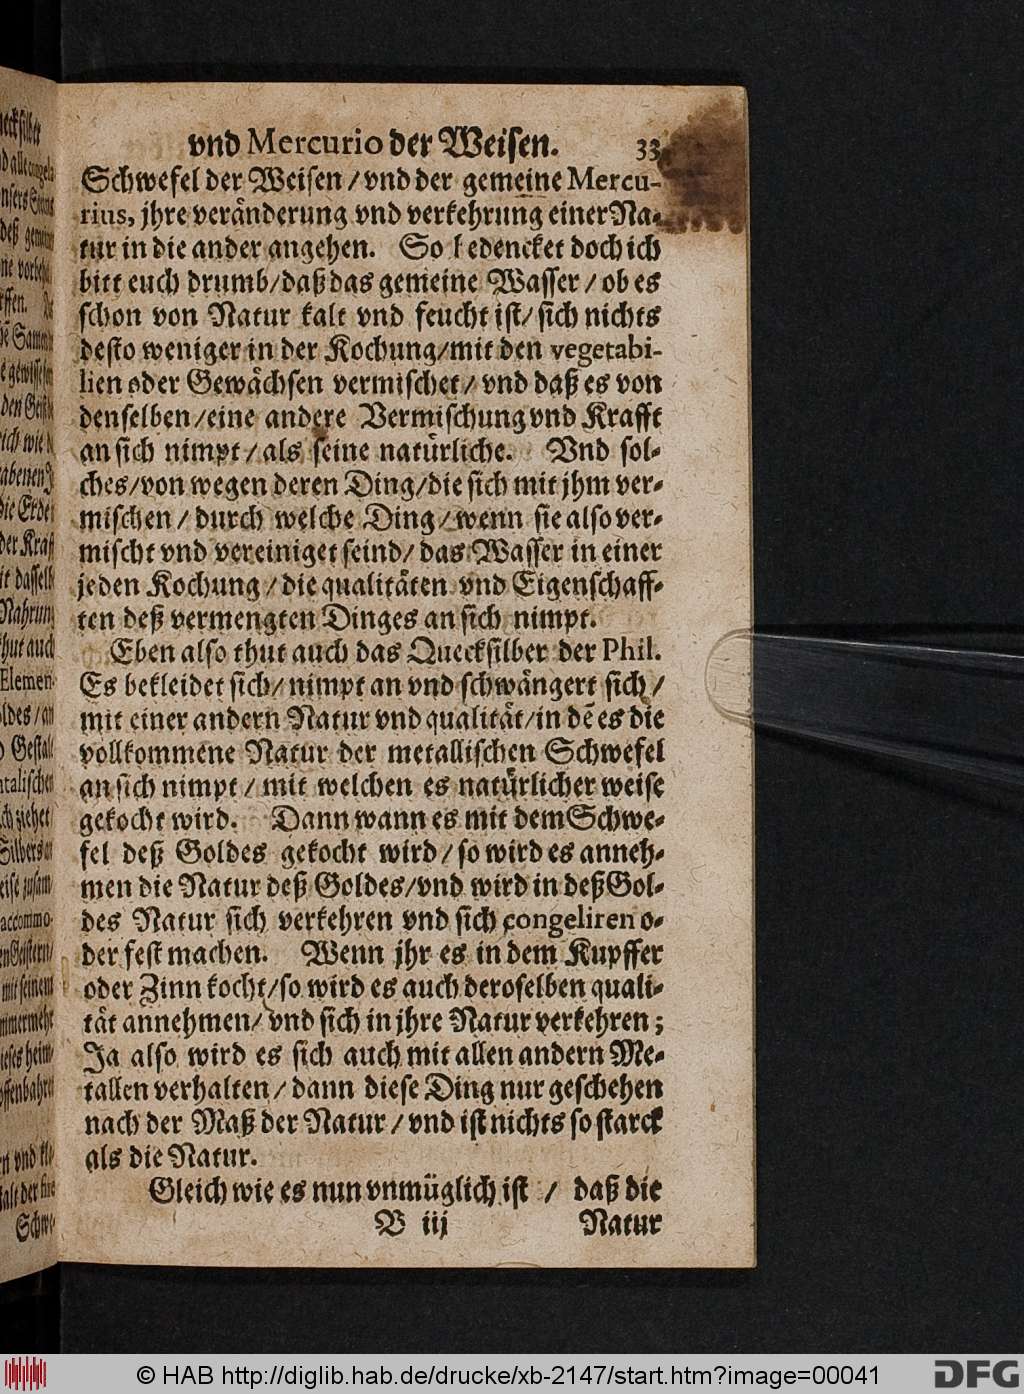 vnd Mercurio der Weisen. 33
Schwefel der Weisen / vnd der gemeine Mercu-
rius, jhre veränderung vnd verkehrung einer Na-
tur in die ander angehen. So bedencket doch ich
bitt euch drumb / daß das gemeine Wasser / ob es
schon von Natur kalt vnd feucht ist / sich nichts
desto weniger in der Kochung / mit den vegetabi-
lien oder Gewächsen vermischet / vnd daß es von
denselben / eine andere Vermischung vnd Krafft
an sich nimpt / als seine natürliche. Vnd sol-
ches / von wegen deren Ding / die sich mit jhm ver-
mischen / durch welche Ding / wenn sie also ver-
mischt vnd vereiniget seind / das Wasser in einer
jeden Kochung / die qualitäten vnd Eigenschaff-
ten deß vermengten Dinges an sich nimpt.
Eben also thut auch das Quecksilber der Phil.
Es bekleidet sich / nimpt an vnd schwängert sich /
mit einer andern Natur vnd qualität / in dẽ es die
vollkommene Natur der metallischen Schwefel
an sich nimpt / mit welchen es natürlicher weise
gekocht wird. Dann wann es mit dem Schwe-
fel deß Goldes gekocht wird / so wird es anneh-
men die Natur deß Goldes / vnd wird in deß Gol-
des Natur sich verkehren vnd sich congeliren o-
der fest machen. Wenn jhr es in dem Kupffer
oder Zinn kocht / so wird es auch deroselben quali-
tät annehmen / vnd sich in jhre Natur verkehren ;
Ja also wird es sich auch mit allen andern Me-
tallen verhalten / dann diese Ding nur geschehen
nach der Maß der Natur / vnd ist nichts so starck
als die Natur.
Gleich wie es nun vnmüglich ist / daß die
V iij Natur
© HAB http://diglib.hab.de/drucke/xb-2147/start.htm?image=00041
DFG